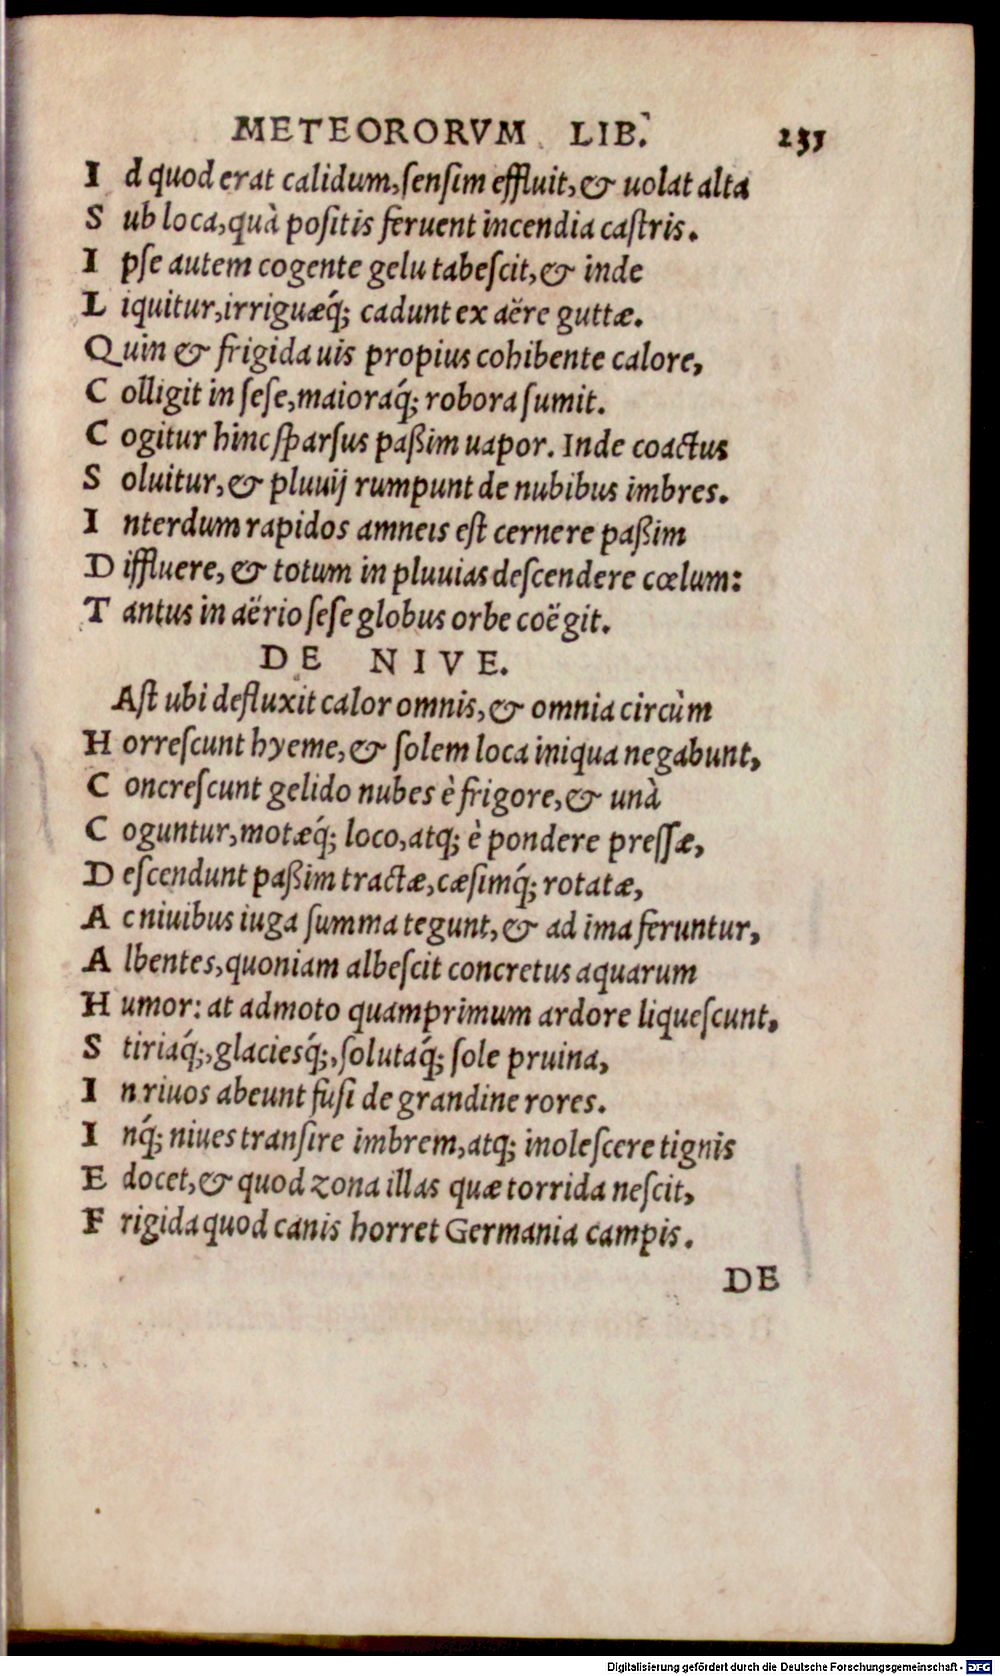 METEORORVM LIB. 233
I d quod erat calidum, ſenſim effluit, & uolat alta
S ub loca, quà poſitis feruent incendia caſtris.
I pſe autem cogente gelu tabeſcit, & inde
L iquitur, irriguæq́; cadunt ex aëre guttæ.
Quin & frigida uis propius cohibente calore,
C olligit in ſeſe, maioraq́; robora ſumit.
C ogitur hinc ſparſus paßim uapor. Inde coactus
S oluitur, & pluuij rumpunt de nubibus imbres.
I nterdum rapidos amneis eſt cernere paßim
D iffluere, & totum in pluuias deſcendere cœlum:
T antus in aërio ſeſe globus orbe coëgit.
DE NIVE.
Aſt ubi defluxit calor omnis, & omnia circùm
H orreſcunt hyeme, & ſolem loca iniqua negabunt,
C oncreſcunt gelido nubes è frigore, & unà
C oguntur, motæq́; loco, atq; è pondere preſſæ,
D eſcendunt paßim tractæ, cæſimq́; rotatæ,
A c niuibus iuga ſumma tegunt, & ad ima feruntur,
A lbentes, quoniam albeſcit concretus aquarum
H umor: at admoto quamprimum ardore liqueſcunt,
S tiriaq́;, glacieſq́;, ſolutaq́; ſole pruina,
I n riuos abeunt fuſi de grandine rores.
I nq́; niues tranſire imbrem, atq; inoleſcere tignis
E docet, & quod zona illas quæ torrida neſcit,
F rigida quod canis horret Germania campis.
DE
Digitalisierung gefördert durch die Deutsche Forschungsgemeinschaft - DFG